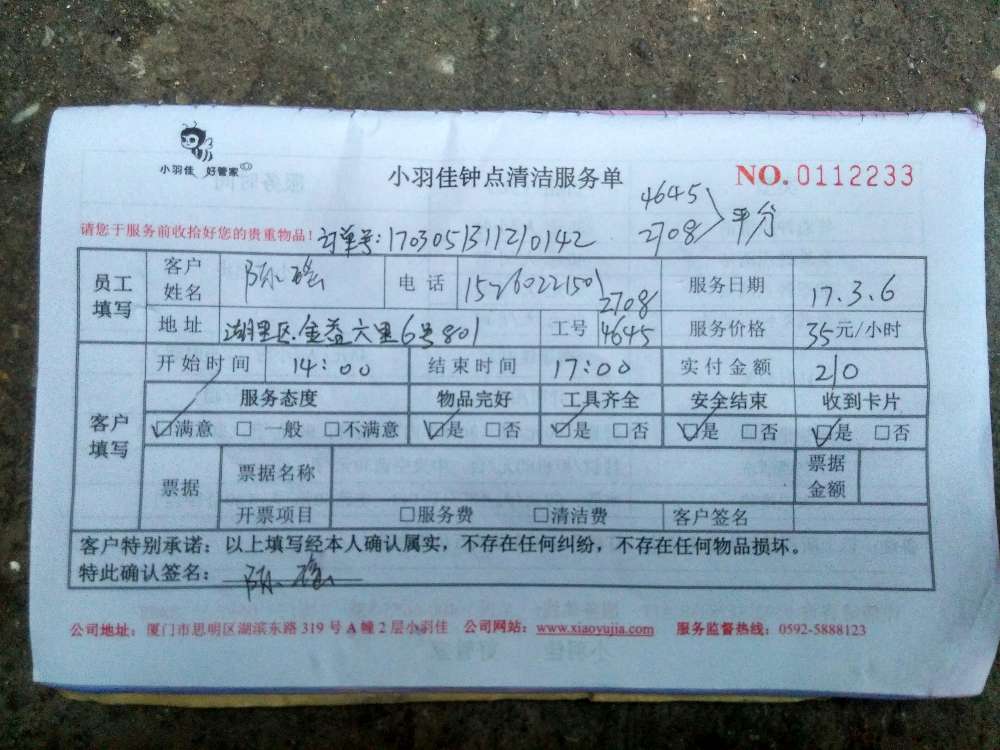 小羽佳 好管家
小羽佳钟点清洁服务单
NO.0112233
4645
2708
平分
请您于服务前收拾好您的贵重物品!
订单号:1703051311210142
员工填写
客户姓名
陈瑶
电话
15260221501
服务日期
17.3.6
地址
湖里区.金益六里6号801
工号
2708
4645
服务价格
35元/小时
客户填写
开始时间 14:00 结束时间 17:00 实付金额 210
服务态度 物品完好 工具齐全 安全结束 收到卡片
☑满意 □一般 □不满意 ☑是 □否 ☑是 □否 ☑是 □否 ☑是 □否
票据
票据名称
票据金额
开票项目 □服务费 □清洁费 客户签名
客户特别承诺:以上填写经本人确认属实,不存在任何纠纷,不存在任何物品损坏。
特此确认签名: 陈瑶
公司地址:厦门市思明区湖滨东路 319 号 A 幢 2 层小羽佳 公司网站:www.xiaoyujia.com 服务监督热线:0592-5888123